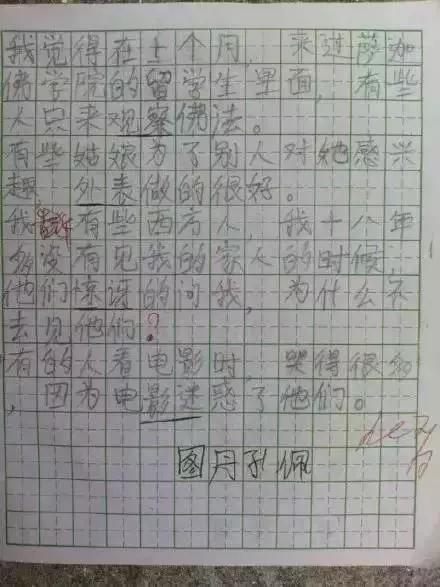 我觉得在十个月，来过萨加
佛学院的留学生里面，有些
人只来观察佛法。
有些姑娘为了别人对她感兴
趣，外表做的很好。
我 有些西方人，我十八年
多没有见我的家人的时候，
他们惊讶的问我，为什么不
去见他们？
有的人看电影时，哭得很多
，因为电影迷惑了他们。
图丹孔佩